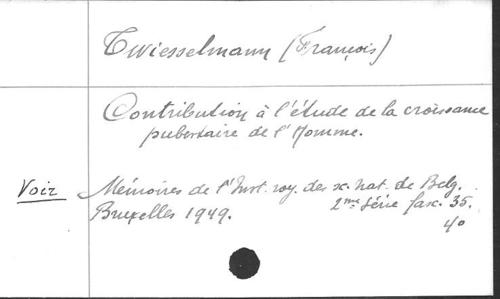 Twiesselmann (François)
Contribution à l'étude de la croissance
pubertaire de l'Homme.
Voir Mémoires de l'Inst. roy. des sc. nat. de Belg.
Bruxelles 1949. 2me série fasc. 35.
4o